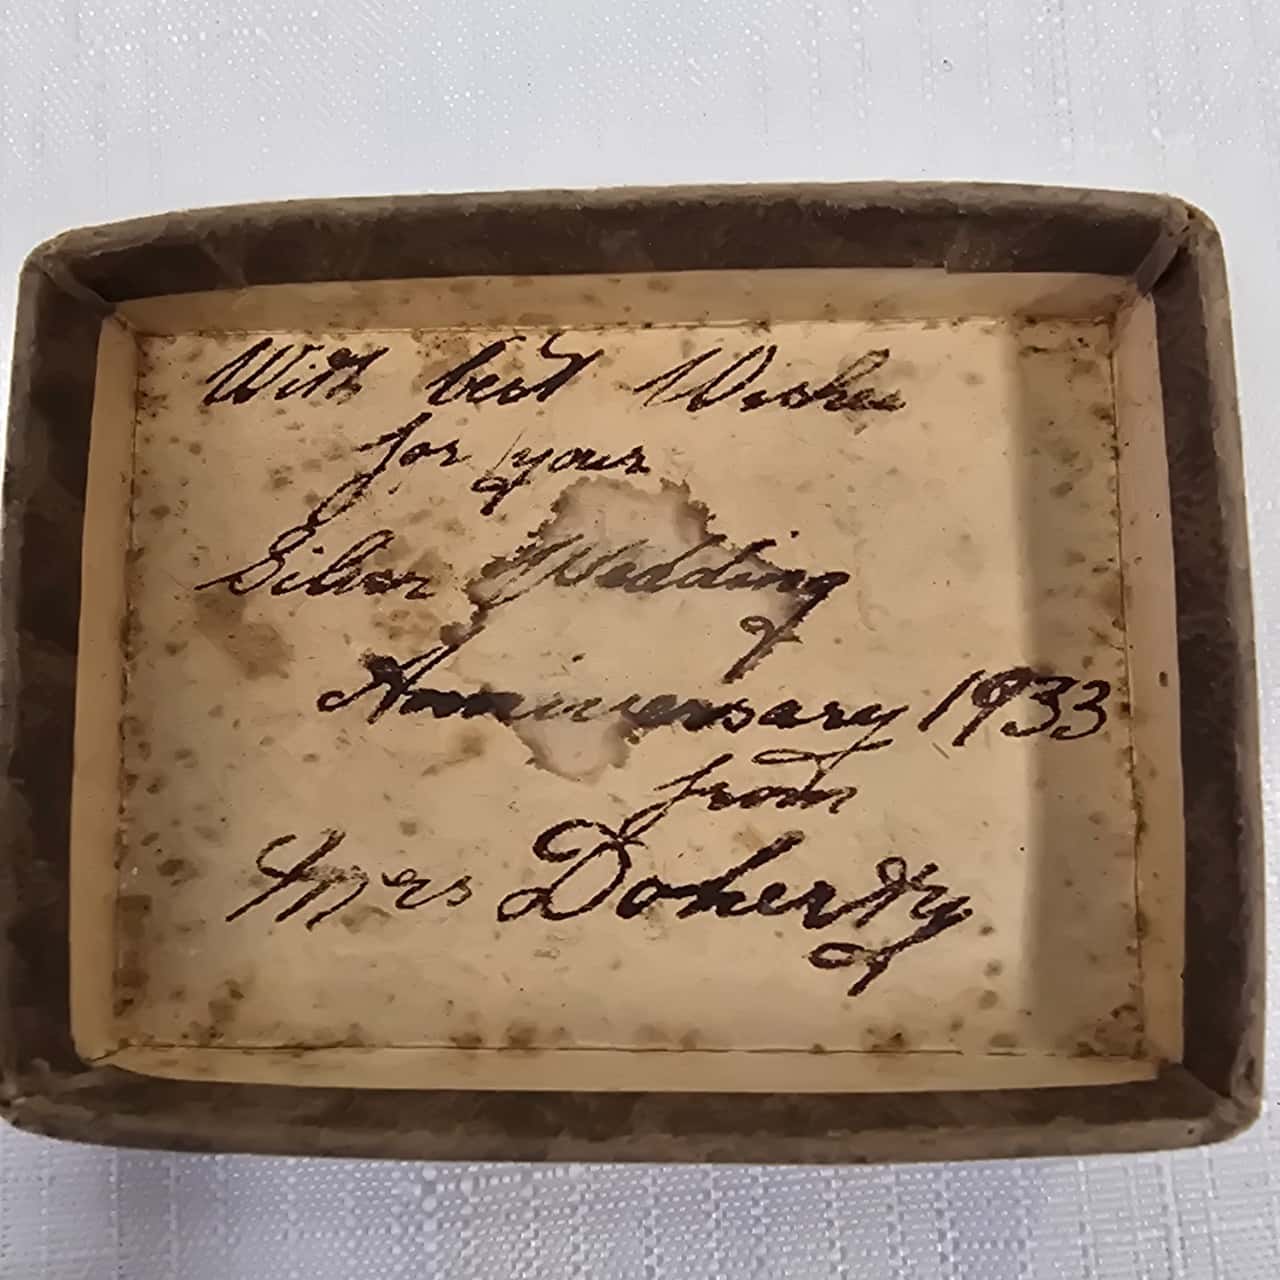 With best Wishes
for your
Silver Wedding
Anniversary 1933
from
Mrs Doherty